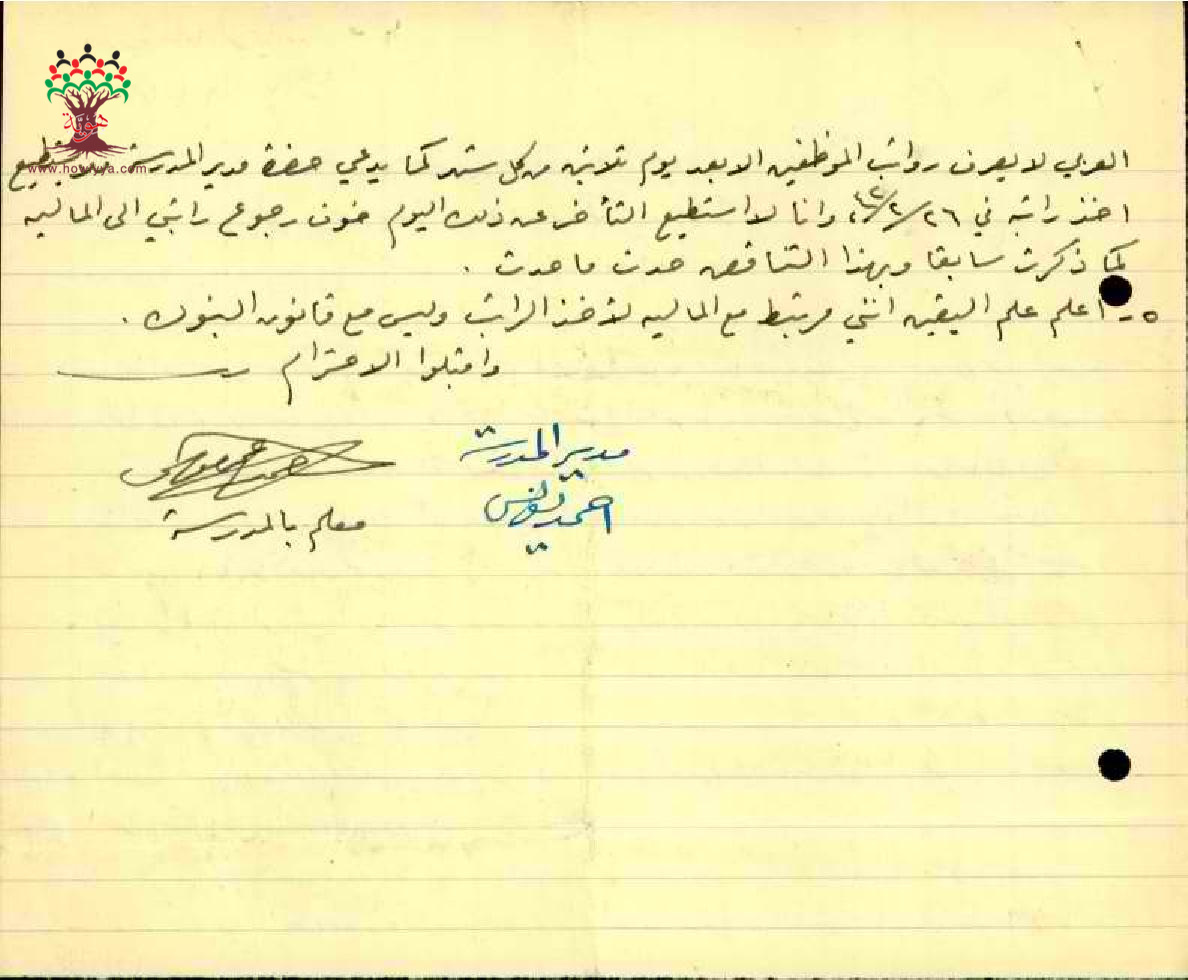 هوية
www.howiyya.com
العربي لا يصرف رواتب الموظفين الا بعد يوم ثلاثين من كل شهر كما يدعي حضرة مدير المدرسة
اخذ راتبه في ٢٦/٢/ وانا لا استطيع التأخر عن ذلك اليوم خوف رجوع راتبي الى المالية
كما ذكرت سابقا وبهذا التناقض حدث ما حدث .
٥ - اعلم علم اليقين انني مرتبط مع المالية لأخذ الراتب وليس مع قانون البنوك .
واقبلوا الاحترام
مدير المدرسة
احمد
معلم بالمدرسة